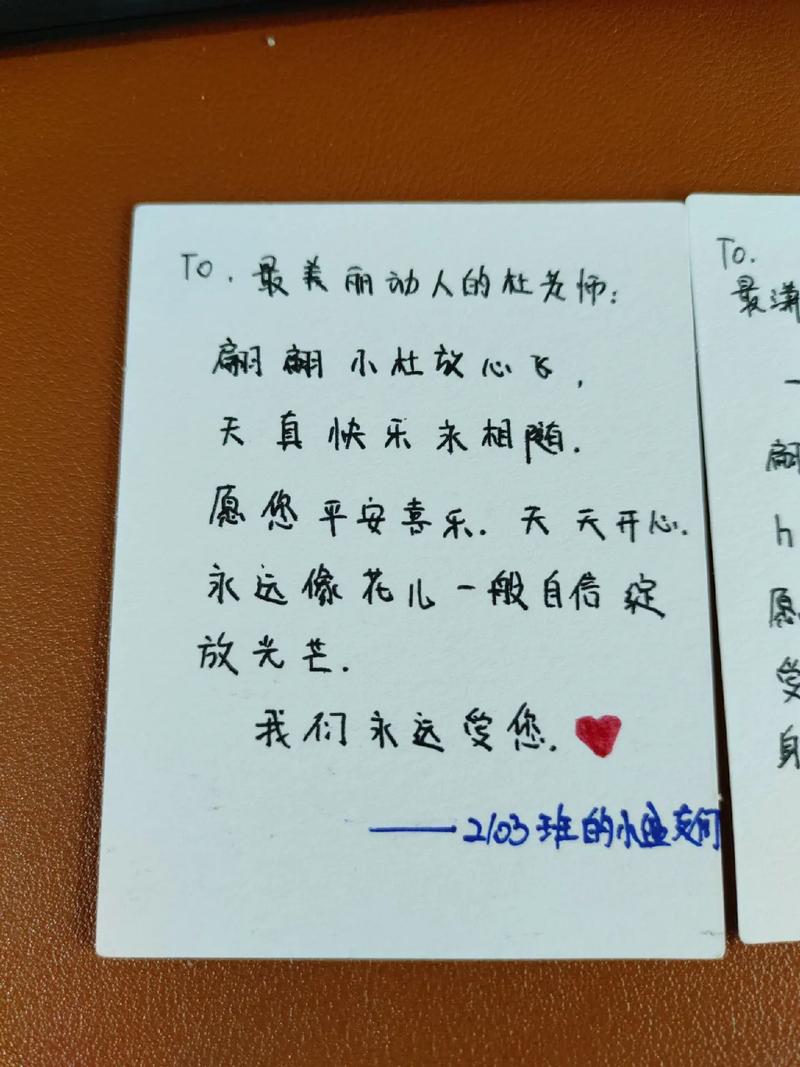 To. 最美丽动人的杜老师:
翩翩小杜放心飞,
天真快乐永相随.
愿您平安喜乐. 天天开心.
永远像花儿一般自信绽
放光芒.
我们永远爱您.
——2103班的小
To.
最潇
一
翩
h
愿
爱
身